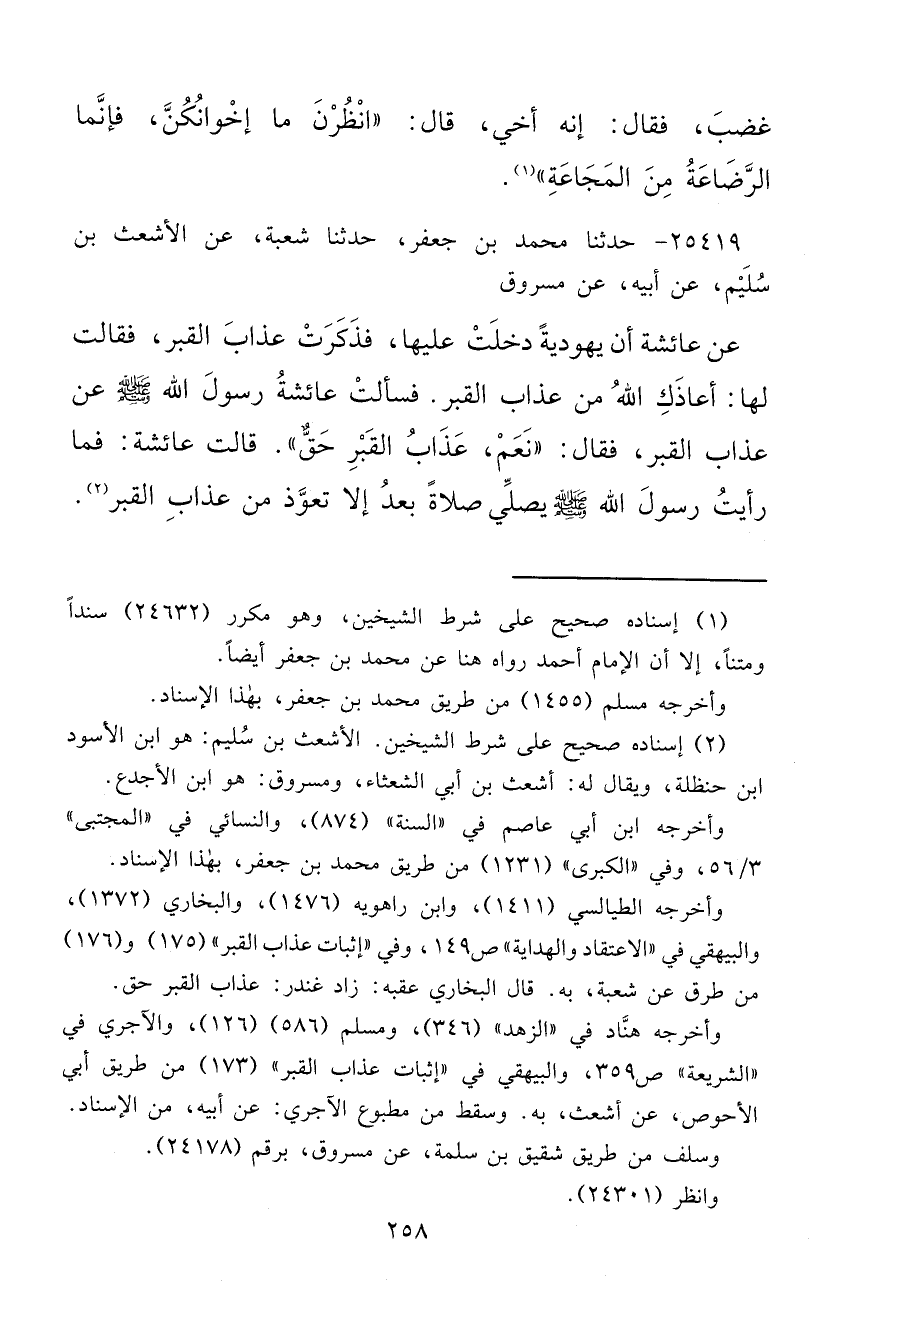 غضبَ، فقال: إنه أخي، قال: «انْظُرْنَ ما إخْوانُكُنَّ، فإنَّما
الرَّضَاعَةُ مِنَ المَجَاعَةِ»(١).
٢٥٤١٩- حدثنا محمد بن جعفر، حدثنا شعبة، عن الأشعث بن
سُلَيْم، عن أبيه، عن مسروق
عن عائشة أن يهوديةً دخلَتْ عليها، فذَكَرَتْ عذابَ القبر، فقالت
لها: أعاذَكِ اللهُ من عذاب القبر. فسألتْ عائشةُ رسولَ الله ﷺ عن
عذاب القبر، فقال: «نَعَمْ، عَذَابُ القَبْرِ حَقٌّ». قالت عائشة: فما
رأيتُ رسولَ الله ﷺ يصلِّي صلاةً بعدُ إلا تعوَّذ من عذابِ القبر(٢).
(١) إسناده صحيح على شرط الشيخين، وهو مكرر (٢٤٦٣٢) سنداً
ومتناً، إلا أن الإمام أحمد رواه هنا عن محمد بن جعفر أيضاً.
وأخرجه مسلم (١٤٥٥) من طريق محمد بن جعفر، بهٰذا الإسناد.
(٢) إسناده صحيح على شرط الشيخين. الأشعث بن سُليم: هو ابن الأسود
ابن حنظلة، ويقال له: أشعث بن أبي الشعثاء، ومسروق: هو ابن الأجدع.
وأخرجه ابن أبي عاصم في «السنة» (٨٧٤)، والنسائي في «المجتبى»
٥٦/٣، وفي «الكبرى» (١٢٣١) من طريق محمد بن جعفر، بهٰذا الإسناد.
وأخرجه الطيالسي (١٤١١)، وابن راهويه (١٤٧٦)، والبخاري (١٣٧٢)،
والبيهقي في «الاعتقاد والهداية» ص١٤٩، وفي «إثبات عذاب القبر» (١٧٥) و(١٧٦)
من طرق عن شعبة، به. قال البخاري عقبه: زاد غندر: عذاب القبر حق.
وأخرجه هنَّاد في «الزهد» (٣٤٦)، ومسلم (٥٨٦) (١٢٦)، والآجري في
«الشريعة» ص٣٥٩، والبيهقي في «إثبات عذاب القبر» (١٧٣) من طريق أبي
الأحوص، عن أشعث، به. وسقط من مطبوع الآجري: عن أبيه، من الإسناد.
وسلف من طريق شقيق بن سلمة، عن مسروق، برقم (٢٤١٧٨).
وانظر (٢٤٣٠١).
٢٥٨